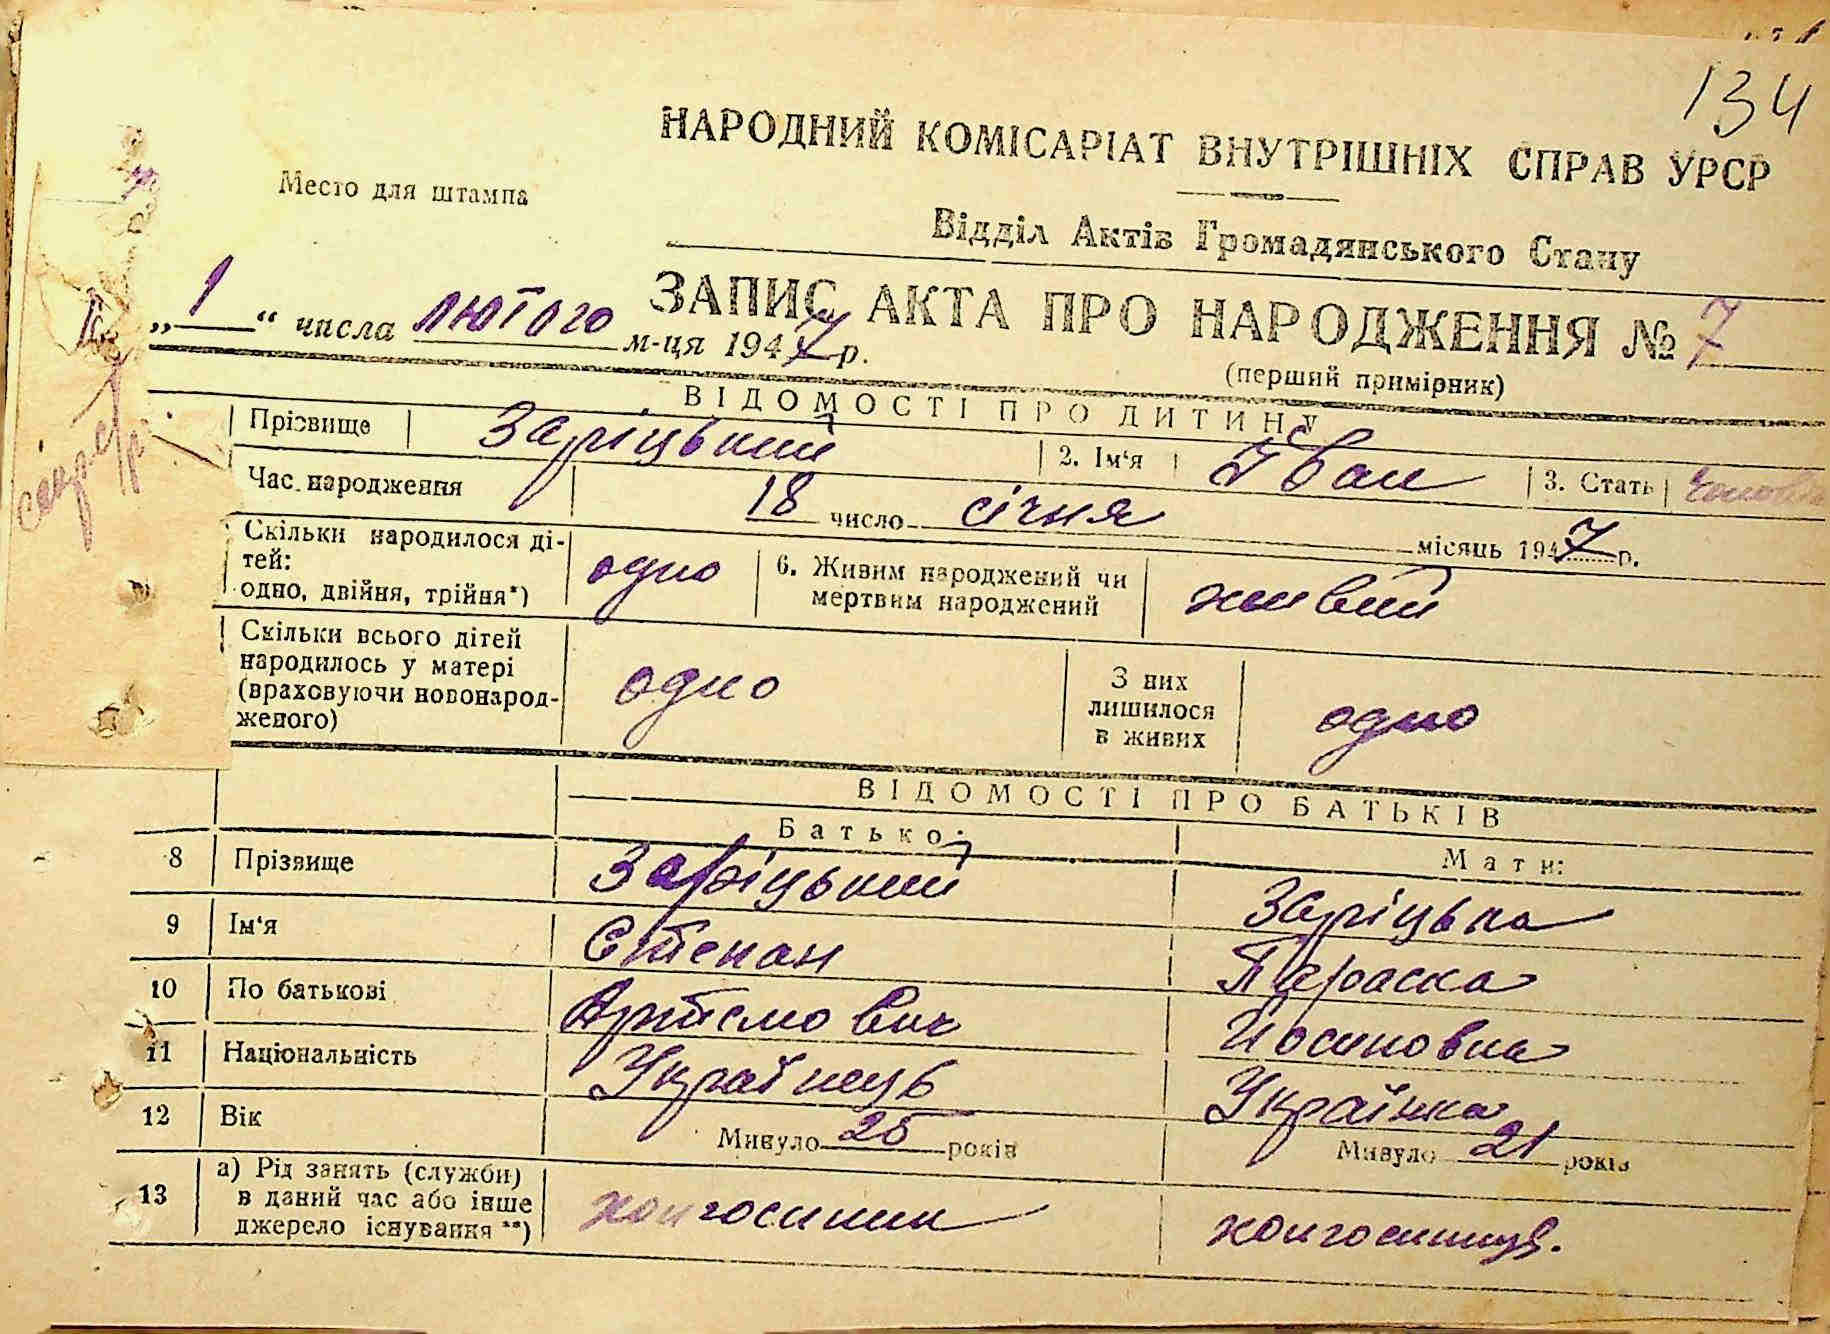 134
НАРОДНИЙ КОМІСАРІАТ ВНУТРІШНІХ СПРАВ УРСР
Место для штампа
Відділ Актів Громадянського Стану
ЗАПИС АКТА ПРО НАРОДЖЕННЯ № 7
„1“ числа лютого м-ця 1947 р.
(перший примірник)
ВІДОМОСТІ ПРО ДИТИНУ
Прізвище Заріцький 2. Ім‘я Іван 3. Стать
Час народження 18 число січня місяць 1947 р.
Скільки народилося ді-
тей:
одно, двійня, трійня*) одно 6. Живим народжений чи
мертвим народжений живий
Скільки всього дітей
народилось у матері
(враховуючи новонарод-
женого) одно З них
лишилося
в живих одно
ВІДОМОСТІ ПРО БАТЬКІВ
Батько: Мати:
8 Прізвище Заріцький Заріцька
9 Ім‘я Степан Параска
10 По батькові Артемович Йосиповна
11 Національність Українець Українка
12 Вік Минуло 25 років Минуло 21 років
13 а) Рід занять (служби)
в даний час або інше
джерело існування **) колгоспник колгоспниця.